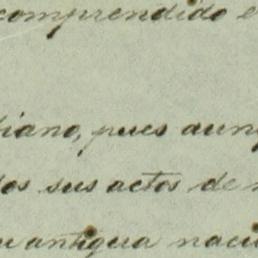 comprendido e
iano, pues aun
os sus actos de
antigua naci